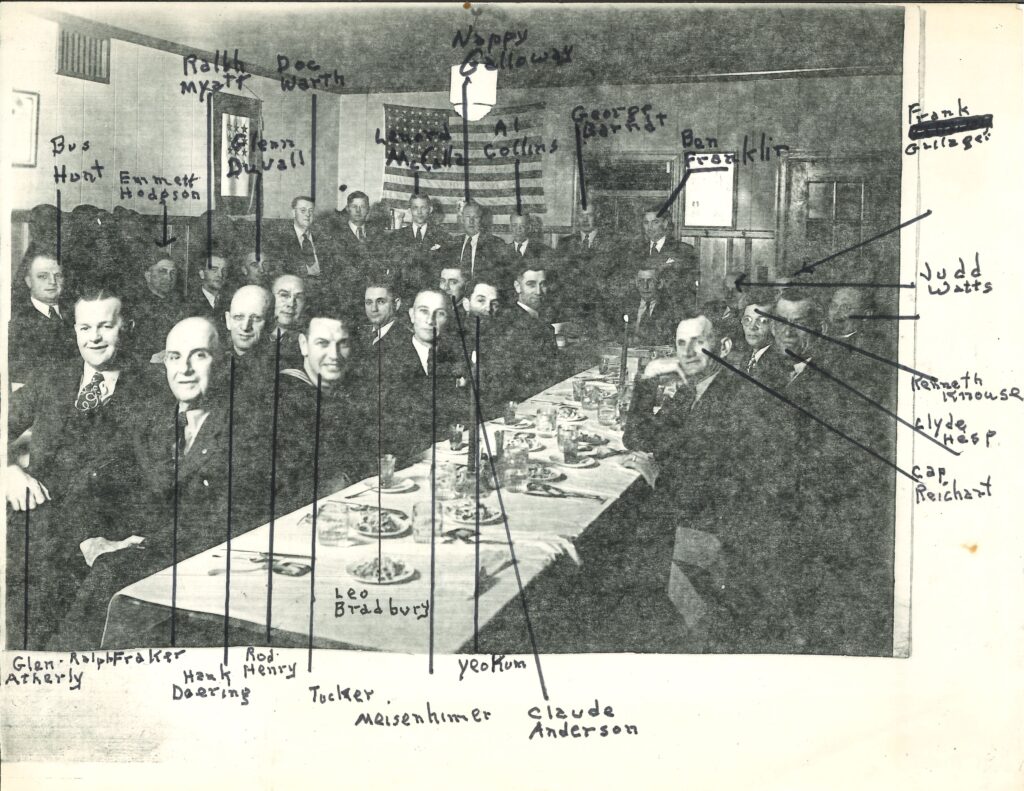 Nappy
Galloway
Ralph
Myatt
Doc
Warth
Frank
Gullager
George
Barnat
Lenard
McCalla
Al
Collins
Glenn
Duvall
Ben
Franklin
Bus
Hunt
Emmett
Hodgson
Judd
Watts
Kenneth
Knouse
Clyde
Hesp
Cap
Reichart
Leo
Bradbury
Glen
Atherly
Ralph Fraker
Hank
Doering
Rod
Henry
Tucker
Meisenhimer
Yeokum
Claude
Anderson